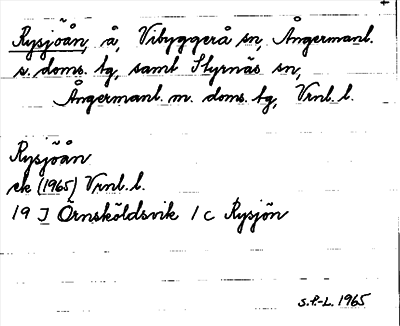 Rysjöån, å, Vibyggerå sn, Ångermanl.
s. doms. tg, samt Styrnäs sn,
Ångermanl. m. doms. tg, Vrnl. l.
Rysjöån
ek (1965) Vrnl. l.
19 I Örnsköldsvik 1 c Rysjön
S.P-L. 1965